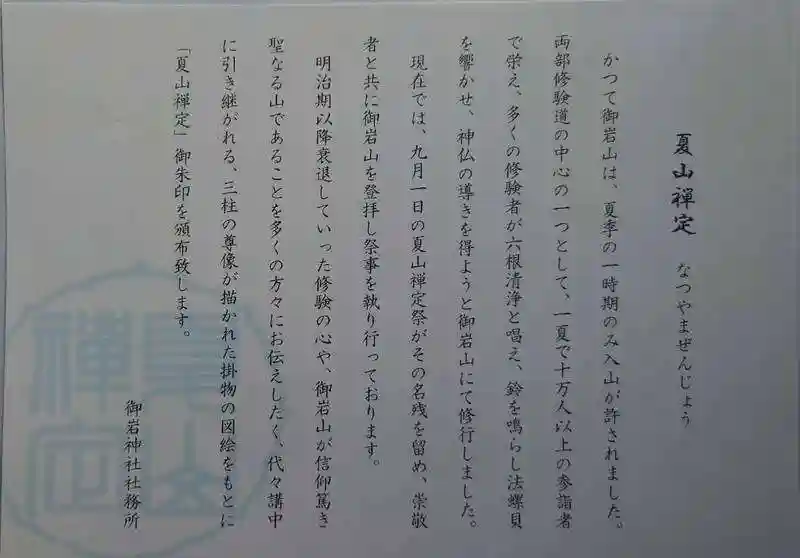 夏山禅定 なつやまぜんじょう
かつて御岩山は、夏季の一時期のみ入山が許されました。
両部修験道の中心の一つとして、一夏で十万人以上の参詣者
で栄え、多くの修験者が六根清浄と唱え、鈴を鳴らし法螺貝
を響かせ、神仏の導きを得ようと御岩山にて修行しました。
現在では、九月一日の夏山禅定祭がその名残を留め、崇敬
者と共に御岩山を登拝し祭事を執り行っております。
明治期以降衰退していった修験の心や、御岩山が信仰篤き
聖なる山であることを多くの方々にお伝えしたく、代々講中
に引き継がれる、三柱の尊像が描かれた掛物の図絵をもとに
「夏山禅定」御朱印を頒布致します。
御岩神社社務所